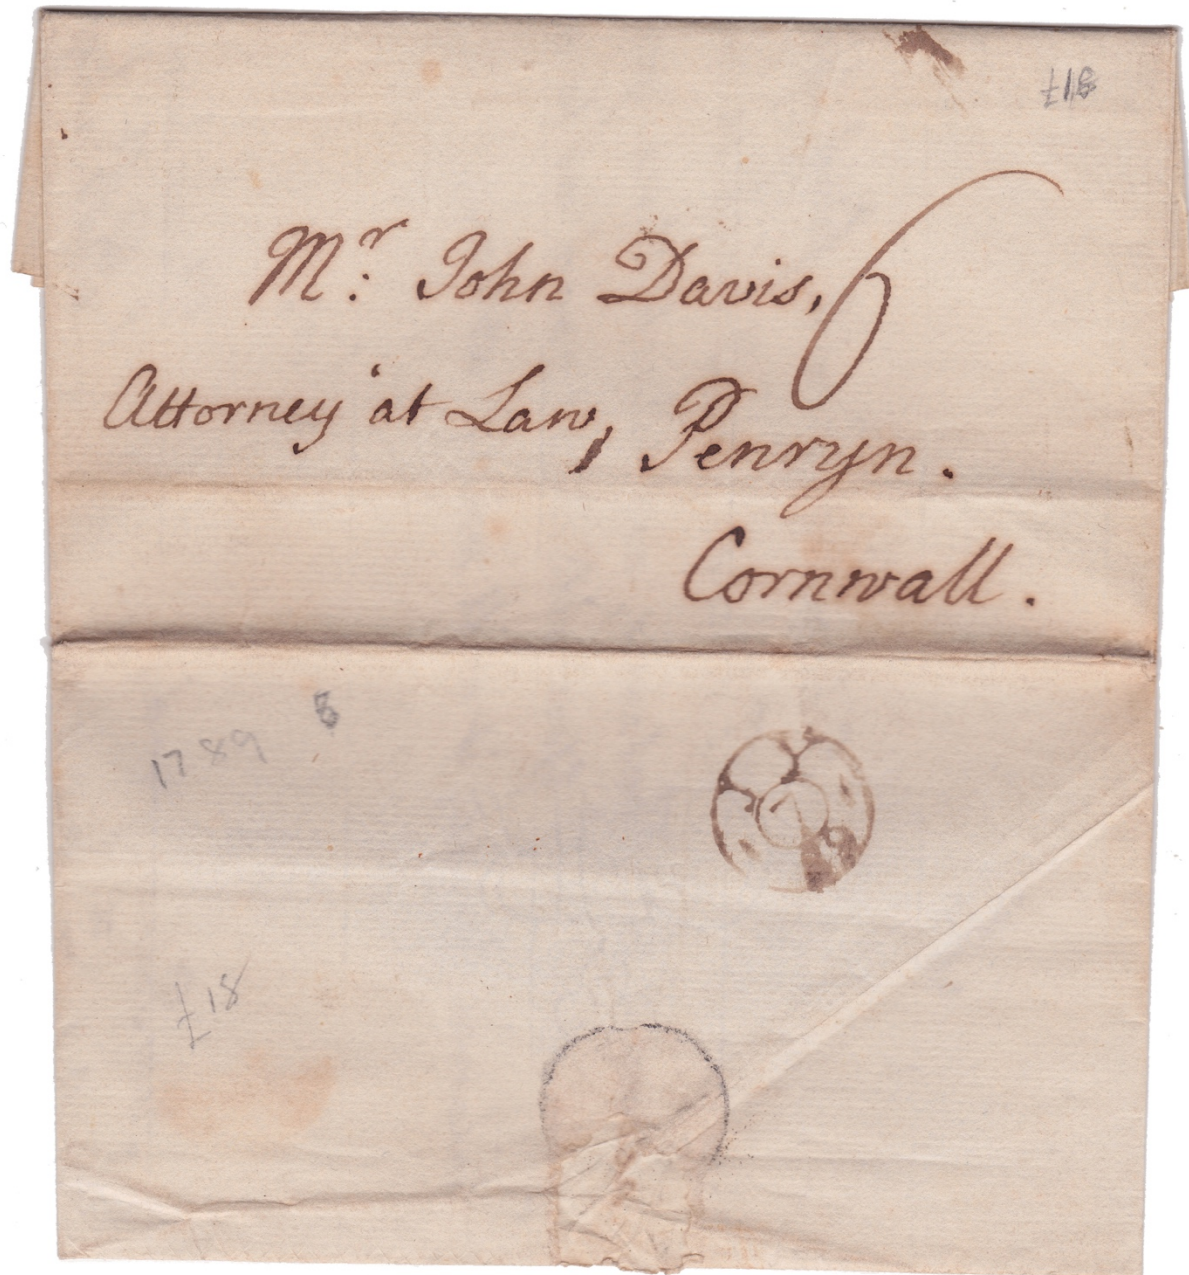 £18
Mr: John Davis, 6
Attorney at Law, Penryn.
Cornwall.
1789
£18